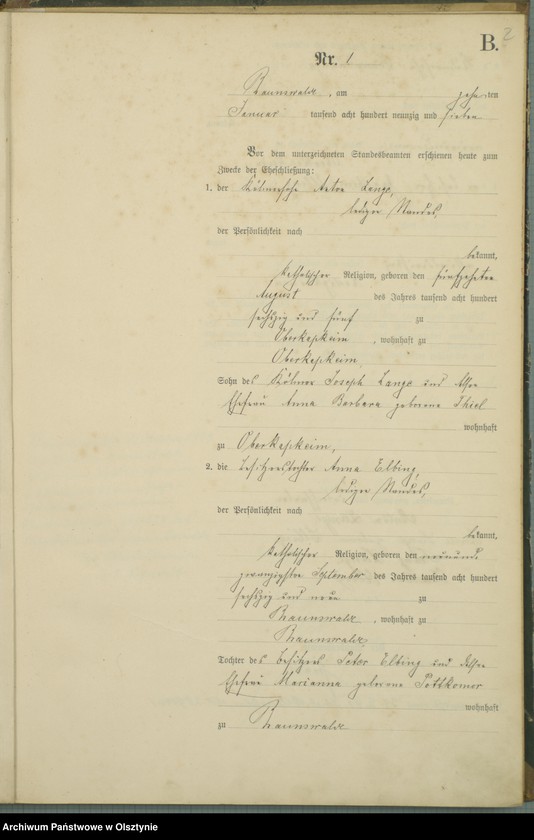 B. 2
Nr. 1
Braunswalde, am zehnten
Januar tausend acht hundert neunzig und sieben
Vor dem unterzeichneten Standesbeamten erschienen heute zum
Zwecke der Eheschließung:
1. der Kölmersohn Anton Lange,
lediger Standes,
der Persönlichkeit nach
bekannt,
katholischer Religion, geboren den fünfzehnten
August des Jahres tausend acht hundert
sechszig und fünf zu
Oberkapkeim, wohnhaft zu
Oberkapkeim,
Sohn des Kölmers Joseph Lange und
Ehefrau Anna Barbara geborene Thiel
wohnhaft
zu Oberkapkeim,
2. die Besitzerstochter Anna Elbing,
lediger Standes,
der Persönlichkeit nach
bekannt,
katholischer Religion, geboren den neunund-
zwanzigsten September des Jahres tausend acht hundert
sechszig und neun zu
Braunswalde, wohnhaft zu
Braunswalde,
Tochter des Besitzers Peter Elbing und dessen
Ehefrau Marianna geborene
wohnhaft
zu Braunswalde
Archiwum Państwowe w Olsztynie